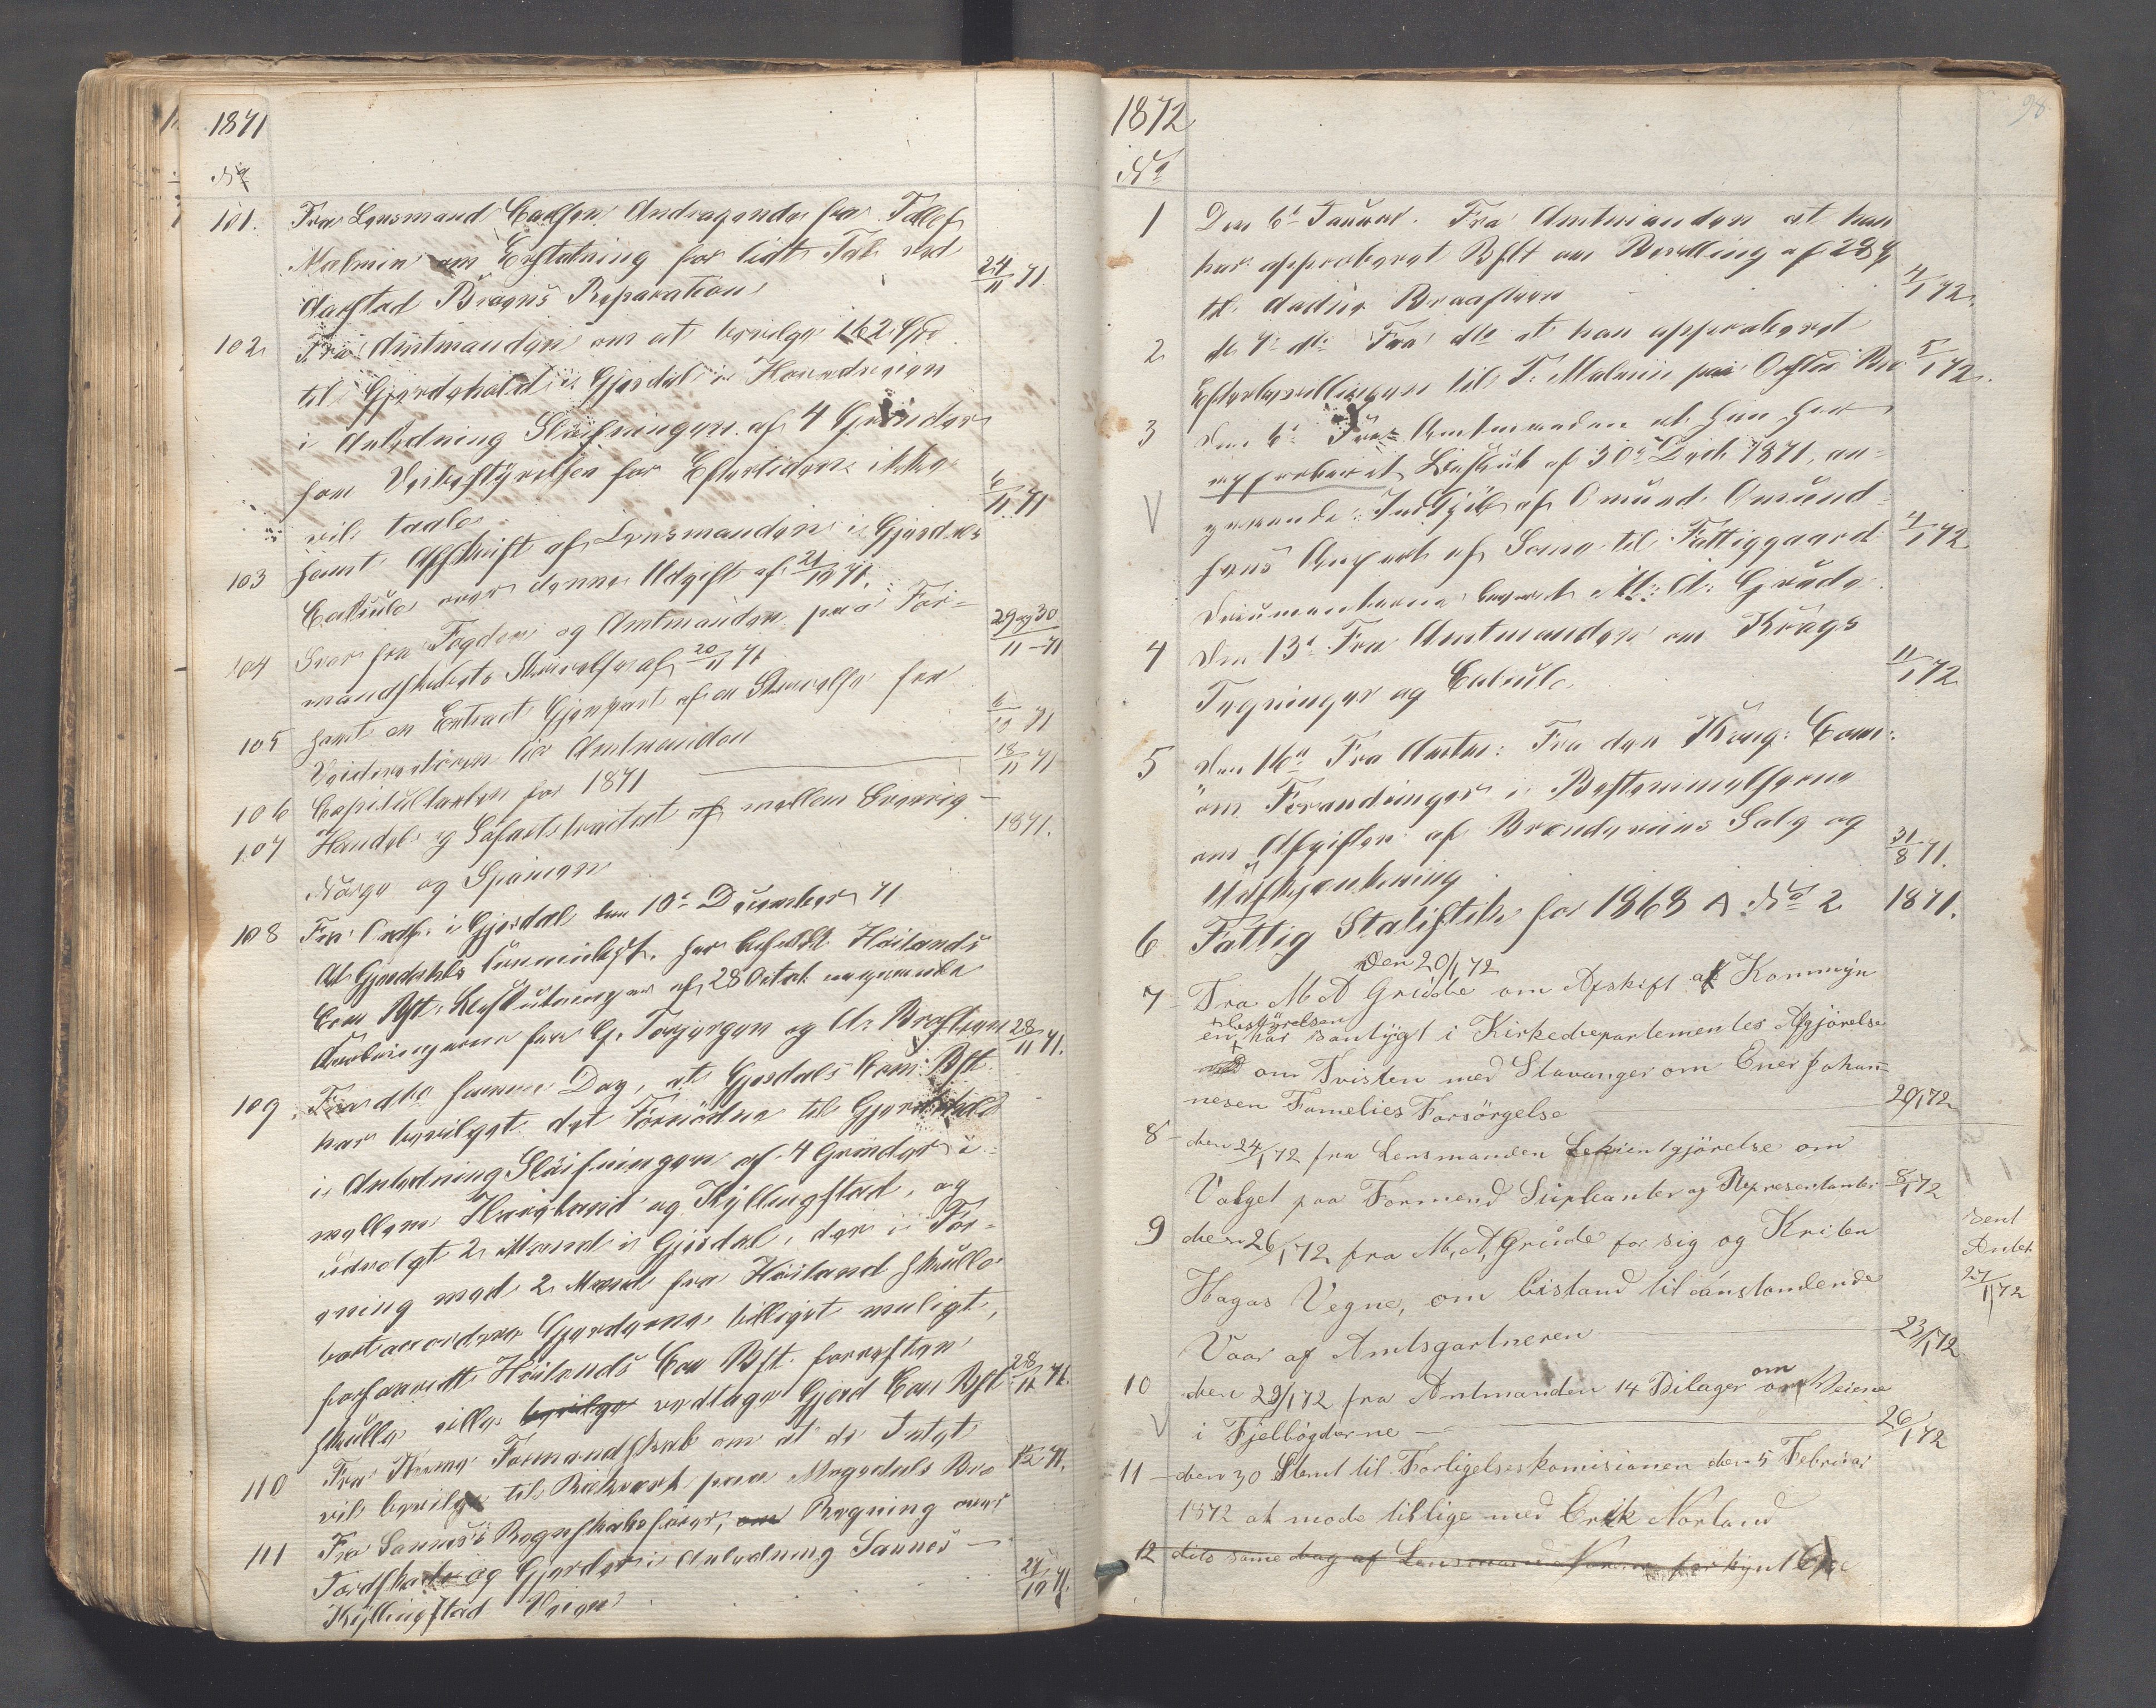 1871
No
101. Fra Lensmand Carlsen Andragende fra Tollef
Malmin om Erstatning for lidt Tab ved
Aarstad Broens Reparation 24/11 71.
102 Fra Amtmanden om at bevilge 162 Spd
til Gjerdehold i Gjesdal i Hovedveien
i Anledning Sløifningen af 4 Grinder
som Veibestyrelsen for Eftertiden ikke
vil taale 6/11 71
103 samt Afskrift af Lensmanden i Gjesdals
Calkule over denne Udgift af 21/10 71.
104 Svar fra Fogden og Amtmanden paa For-
mandskabets Skrivelse af 20/11 71 29 og 30/11-71
105 samt en Extract Gjenpart af en Skrivelse fra
Veidirectøren til Amtmanden 6/10 71 18/11 71
106 Capitultaxten for 1871
107 Handels og Søfartstraktat af mellem Sverrig - 1871.
Norge og Spanien
108 Fra Ordf. i Gjesdal den 10de December 71
At Gjesdahls Communebest. har Høilands
Com Bst. Beslutninger af 28 Octob angaaende
28/11 71.
109. Fra dto samme Dag, at Gjesdals Kom: Bst.
har bevilget det Fornødne til Gjerdehold
i Anledning Sløifningen af 4 Grinder i
mellem Haugland og Kyllingstad, og
udvalgt 2 Mænd i Gjesdal, der i For-
ening med 2 Mænd fra Høiland skulle
bortaccordere Gjerderne billigst muligt,
forsaavidt Høilands Com Bst. forresten
skulle ville bevilge vedtage Gjesd Com Bst 28/11 71.
110 Fra Formandskab om at de Intet
vil bevilge til Rækværk paa Bro 12 71.
111 Fra Sannes's Regnskabsfører, om Regning over
og Gjerder i Anledning Sannes -
Kyllingstad Veien 21/10 71.
98
1872
No
1 Den 6te Januar. Fra Amtmanden at han
har approberet Bslt om Bevilling af 28
til Braasteen 4/1 72.
2 d. 7de do: Fra dto at han approberet
Efterbevillingen til T. Malmin paa Bro 5/1 72.
3 Den 6te Fra Amtmanden at han har
approberet Beslut af 30te Decb 1871, an-
gaaende Indkjøb af Omund Omund-
sens Anpart af til Fattiggaard 4/1 72
V
Documenterne M: A: Grude
4 Den 13de Fra Amtmanden om Krags
Tegninger og Calcule 11/1 72
5 Den 16de Fra Amtm: Fra den Kong: Com:
om Forandringer i Bestemmelserne
om Afgiften af Brændeviins Salg og
Udskjenkning 31/8 71.
6 Fattig Statistik for 1868 A No 2 1871.
Den 20/1 72
7 - Fra M A Grude om Afskift af Kommyn
bestyrelsen
en har samtygt i Kirkedepartementes Afgjørelse
om Tvisten med Stavanger om Ener Johan=
nesen Famelies Forsørgelse 20/1 72
8 - den 24/1 72 fra Lensmanden Bekientgjørelse om
Valget paa Formend Supleanter og Representanter 8/1 72
9 den 26/1 72 fra M, A, Grude for sig og Kristen
Hagas Vegne, om bistand til anstandende
Vaar af Amtsgartneren 23/1 72
sent
Amtet
27/1 72
10 den 29/1 72 fra Amtmanden 14 Bilager om om Veiene
V i Fjelbögderne - 26/1 72
11 - den 30 Stevnt til Forligelseskomisionen den 5 Februar
1872 at møde tillige med Erik Norland
12 dito same dag af Lensmand forkynt